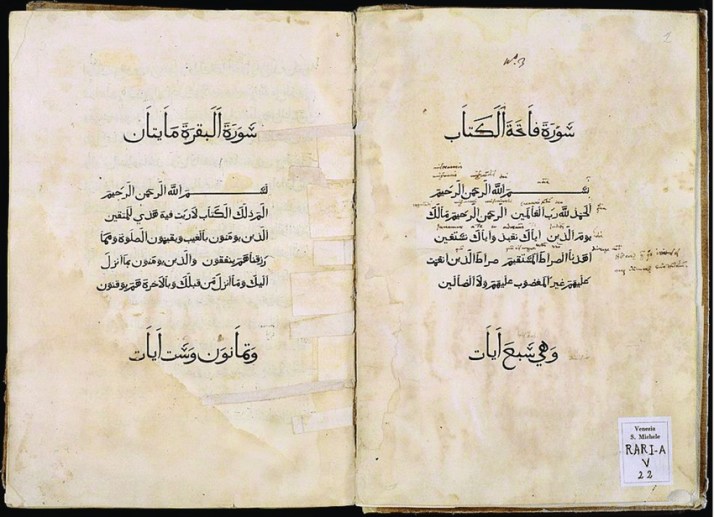 2
N° 3
سورة فاتحة الكتاب
بسم الله الرحمن الرحيم
الحمد لله رب العالمين الرحمن الرحيم مالك
يوم الدين اياك نعبد واياك نستعين
اهدنا الصراط المستقيم صراط الذين انعمت
عليهم غير المغضوب عليهم ولا الضالين
وهي سبع ايات
Venezia
S. Michele
RARI-A
V
22
سورة البقرة مايتان
بسم الله الرحمن الرحيم
الم ذلك الكتاب لا ريب فيه هدي للمتقين
الذين يومنون بالغيب ويقيمون الصلوة ومما
رزقناهم ينفقون والذين يومنون بما انزل
اليك وما انزل من قبلك وبالاخرة هم يوقنون
وثمانون وست ايات